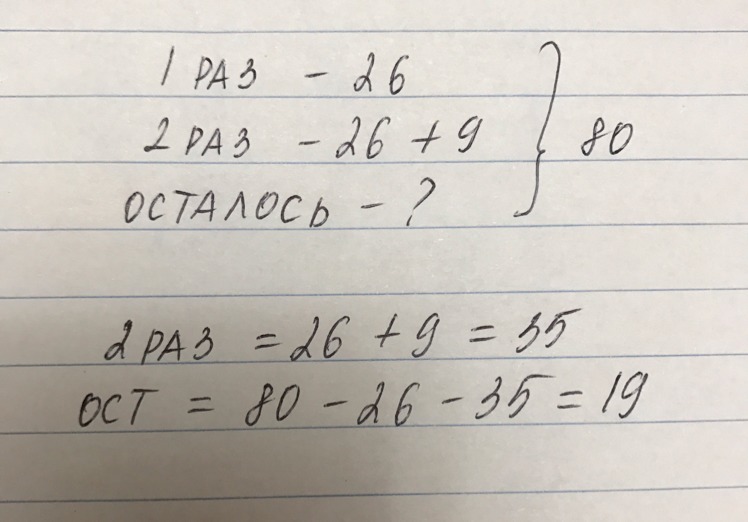 1 РАЗ - 26
2 РАЗ - 26 + 9 } 80
ОСТАЛОСЬ - ?
2 РАЗ = 26 + 9 = 35
ОСТ = 80 - 26 - 35 = 19